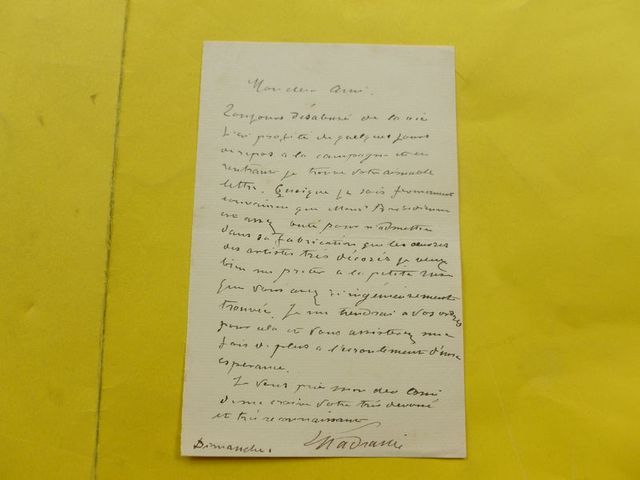 Mon cher Ami.
Toujours désabusé de la vie
j'ai profité de quelques jours
de repos à la campagne et en
rentrant je trouve votre aimable
lettre. Quoique je sois fermement
convaincu que Monsr
est assez buté pour n'admettre
dans sa fabrication que les œuvres
des artistes très décorés je veux
bien me prêter à la petite ruse
que vous avez si ingénieusement
trouvée. Je me tiendrai à vos ordres
pour cela et vous assisterez une
fois de plus à l'écroulement d'une
espérance.
Je vous prie mon cher Ami
de me croire votre très dévoué
et très reconnaissant
Dimanche.